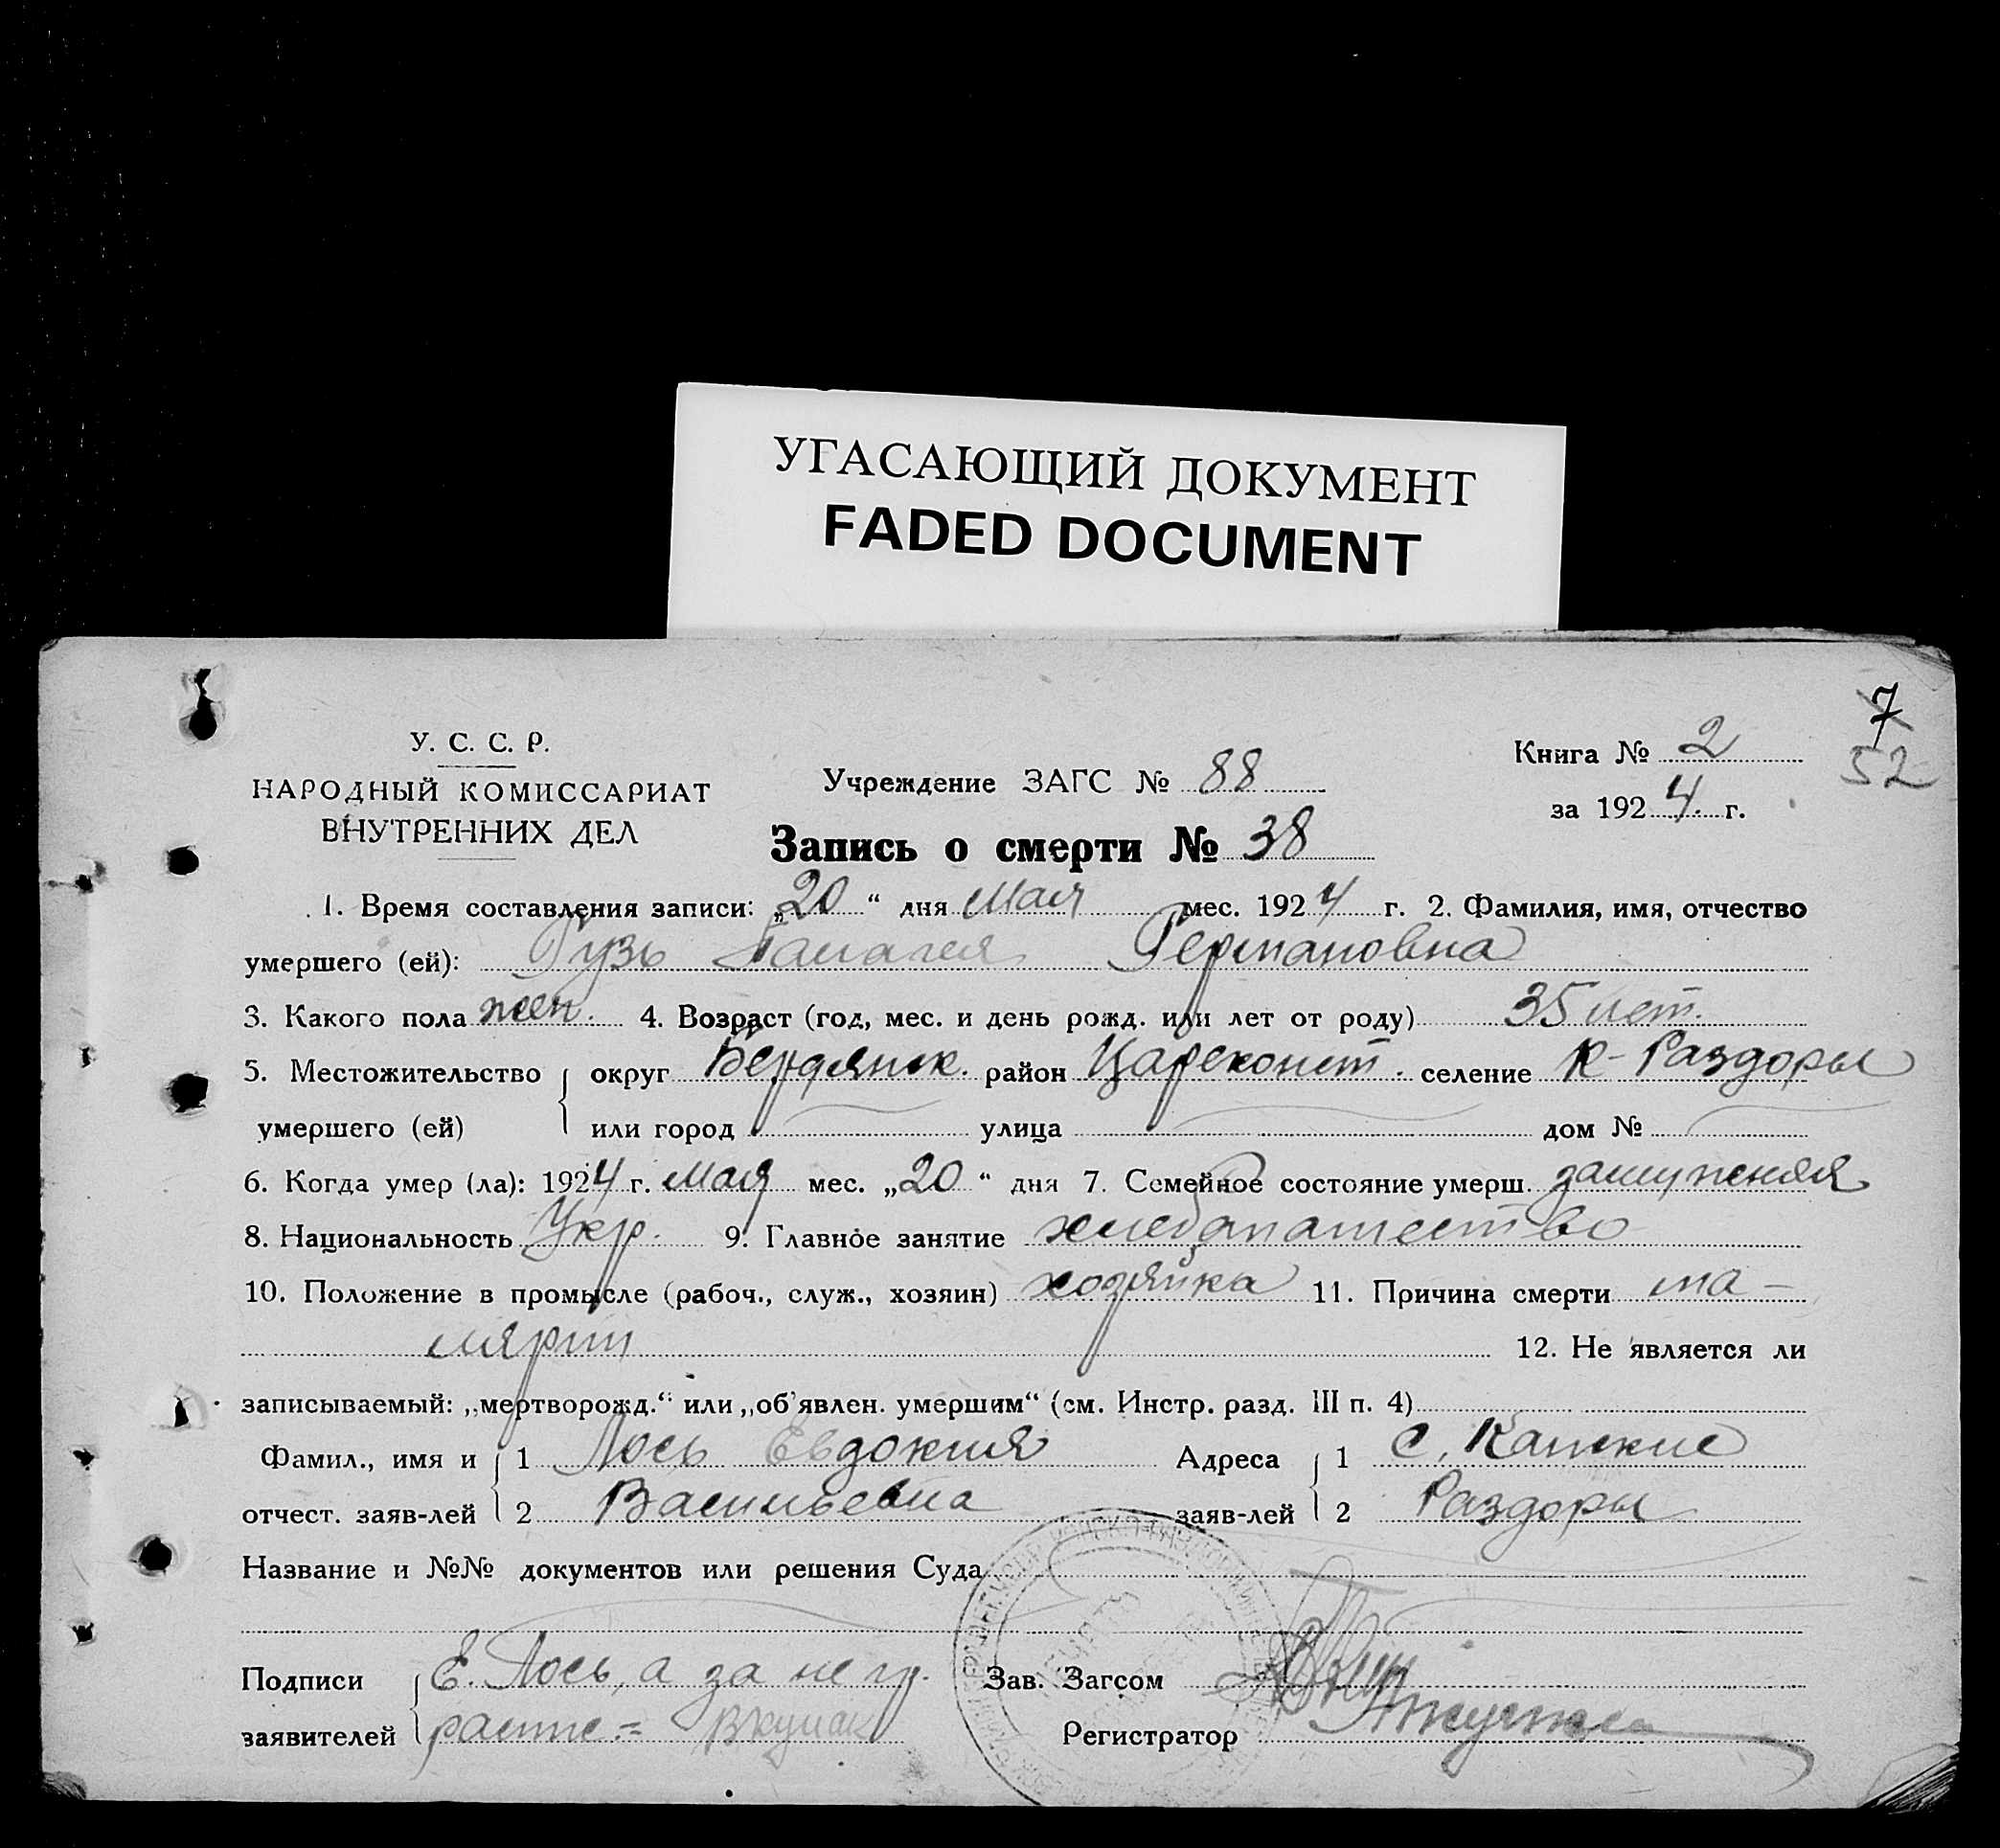 УГАСАЮЩИЙ ДОКУМЕНТ
FADED DOCUMENT
7
52
У. С. С. Р.
НАРОДНЫЙ КОМИССАРИАТ
ВНУТРЕННИХ ДЕЛ
Учреждение ЗАГС № 88
Книга № 2
за 1924 г.
Запись о смерти № 38
1. Время составления записи: „20“ дня Мая мес. 1924 г. 2. Фамилия, имя, отчество
умершего (ей): Гузь Германовна
3. Какого пола жен. 4. Возраст (год, мес. и день рожд. или лет от роду) 35 лет.
5. Местожительство округ Бердянск. район Цареконст. селение К-Раздоры
умершего (ей) или город улица дом №
6. Когда умер (ла): 1924 г. Мая мес. „20“ дня 7. Семейное состояние умерш. замужняя
8. Национальность Укр. 9. Главное занятие хлебопашество
10. Положение в промысле (рабоч., служ., хозяин) хозяйка 11. Причина смерти ма-
лярии 12. Не является ли
записываемый: „мертворожд.“ или „об'явлен. умершим“ (см. Инстр. разд. III п. 4)
Фамил., имя и 1 Лось Евдокия Адреса 1 с. Камские
отчест. заяв-лей 2 Васильевна заяв-лей 2 Раздоры
Название и №№ документов или решения Суда
Подписи Е. Лось, а за не гр. Зав. Загсом
заявителей распс.= Регистратор